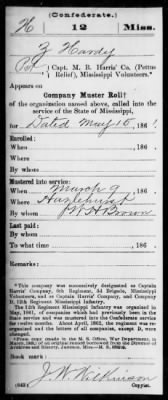 (Confederate.)
H 12 Miss.
J Hardy
Pvt, Capt. M. B. Harris' Co. (Pettus
Relief), Mississippi Volunteers.*
Appears on
Company Muster Roll†
of the organization named above, called into the
service of the State of Mississippi,
for Dated May 15, 186
Enrolled:
When , 186 .
Where
By whom
Mustered into service:
When March 9, 186 .
Where Hazlehurst
By whom W. H. Brown
Last paid:
By whom
To what time , 186 .
Remarks:
*This company was successively designated as Captain
Harris' Company, 6th Regiment, 3d Brigade, Mississippi
Volunteers, and as Captain Harris' Company and Company
D, 12th Regiment Mississippi Infantry.
The 12th Regiment Mississippi Infantry was organized in
May, 1861, of companies which had previously been in the
State service and was mustered into the Confederate States
service twelve months. About April, 1862, the regiment was re-
organized and the letters of all companies, except D, were
changed.
†From copy made in the M. S. Office, War Department, in
March, 1903, of an original record borrowed from the Director of
Archives and History, Jackson, Miss.—M. S.
Book mark:
J. W. Wilkinson
(642) Copyist.